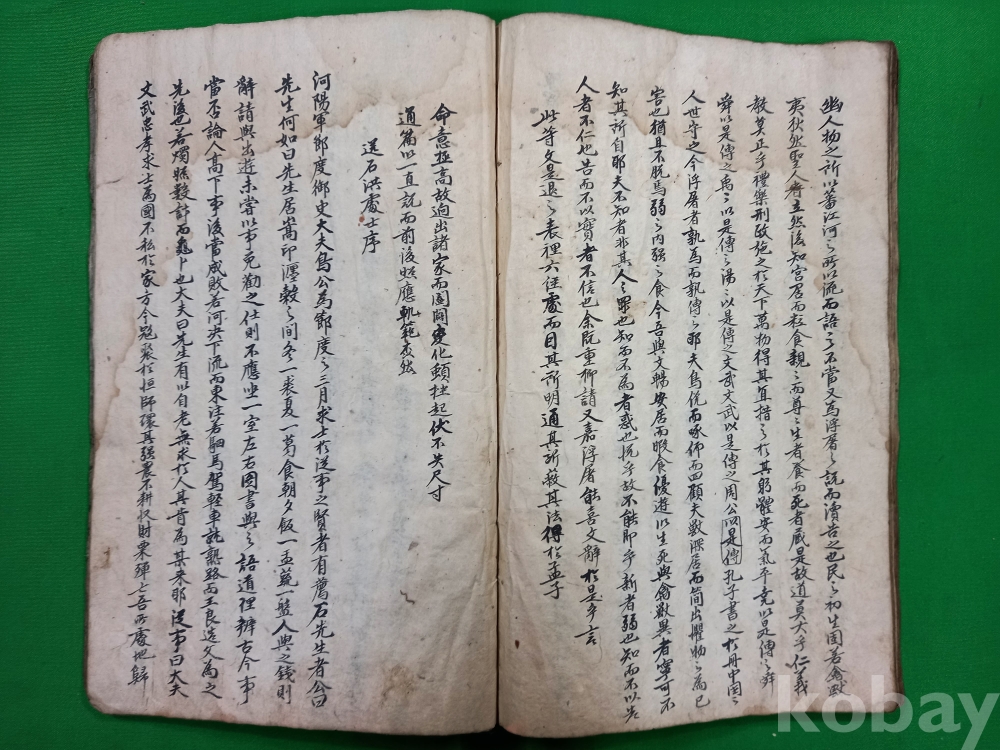 幽人物之所以蕃江河之所以流而語之不當又爲浮屠之說而瀆告之也民之初生固若禽獸
夷狄然聖人者立然後知宮居而粒食親々而尊々生者養而死者藏是故道莫大乎仁義
教莫正乎禮樂刑政施之於天下萬物得其宜措之於其躬體安而氣平堯以是傳之舜
舜以是傳之禹々以是傳之湯々以是傳之文武文武以是傳之周公以是傳孔子書之於冊中国之
人世守之今浮屠者孰爲而孰傳之耶夫鳥俛而啄仰而四顧夫獸深居而簡出懼物之爲已
害也猶且不脫焉弱之肉强之食今吾與文暢安居而暇食優遊以生死與禽獸異者寧可不
知其所自耶夫不知者非其人之罪也知而不爲者惑也悅乎故不能即乎新者弱也知而不以告
人者不仁也告而不以實者不信也余旣重柳請又嘉浮屠能喜文辭於是乎言
此等文是退之表裡六經處而目其所明通其所蔽其法得於孟子
命意極高故逈出諸家而闔闢變化頓挫起伏不失尺寸
通篇以一直說而前後照應軌範森然
送石洪處士序
河陽軍節度御史大夫烏公爲節度之三月求士於從事之賢者有薦石先生者公曰
先生何如曰先生居嵩邙瀍穀之間冬一裘夏一葛食朝夕飯一盂蔬一盤人與之錢則
辭請與出遊未嘗以事免勸之仕則不應坐一室左右圖書與之語道理辨古今事
當否論人高下事後當成敗若河決下流而東注若駟馬駕輕車就熟路而王良造父爲之
先後也若燭照數計而龜卜也大夫曰先生有以自老無求於人其肯爲某來耶從事曰大夫
文武忠孝求士爲國不私於家方今寇聚於恒師環其疆農不耕收財粟殫亡吾所處地歸
kobay